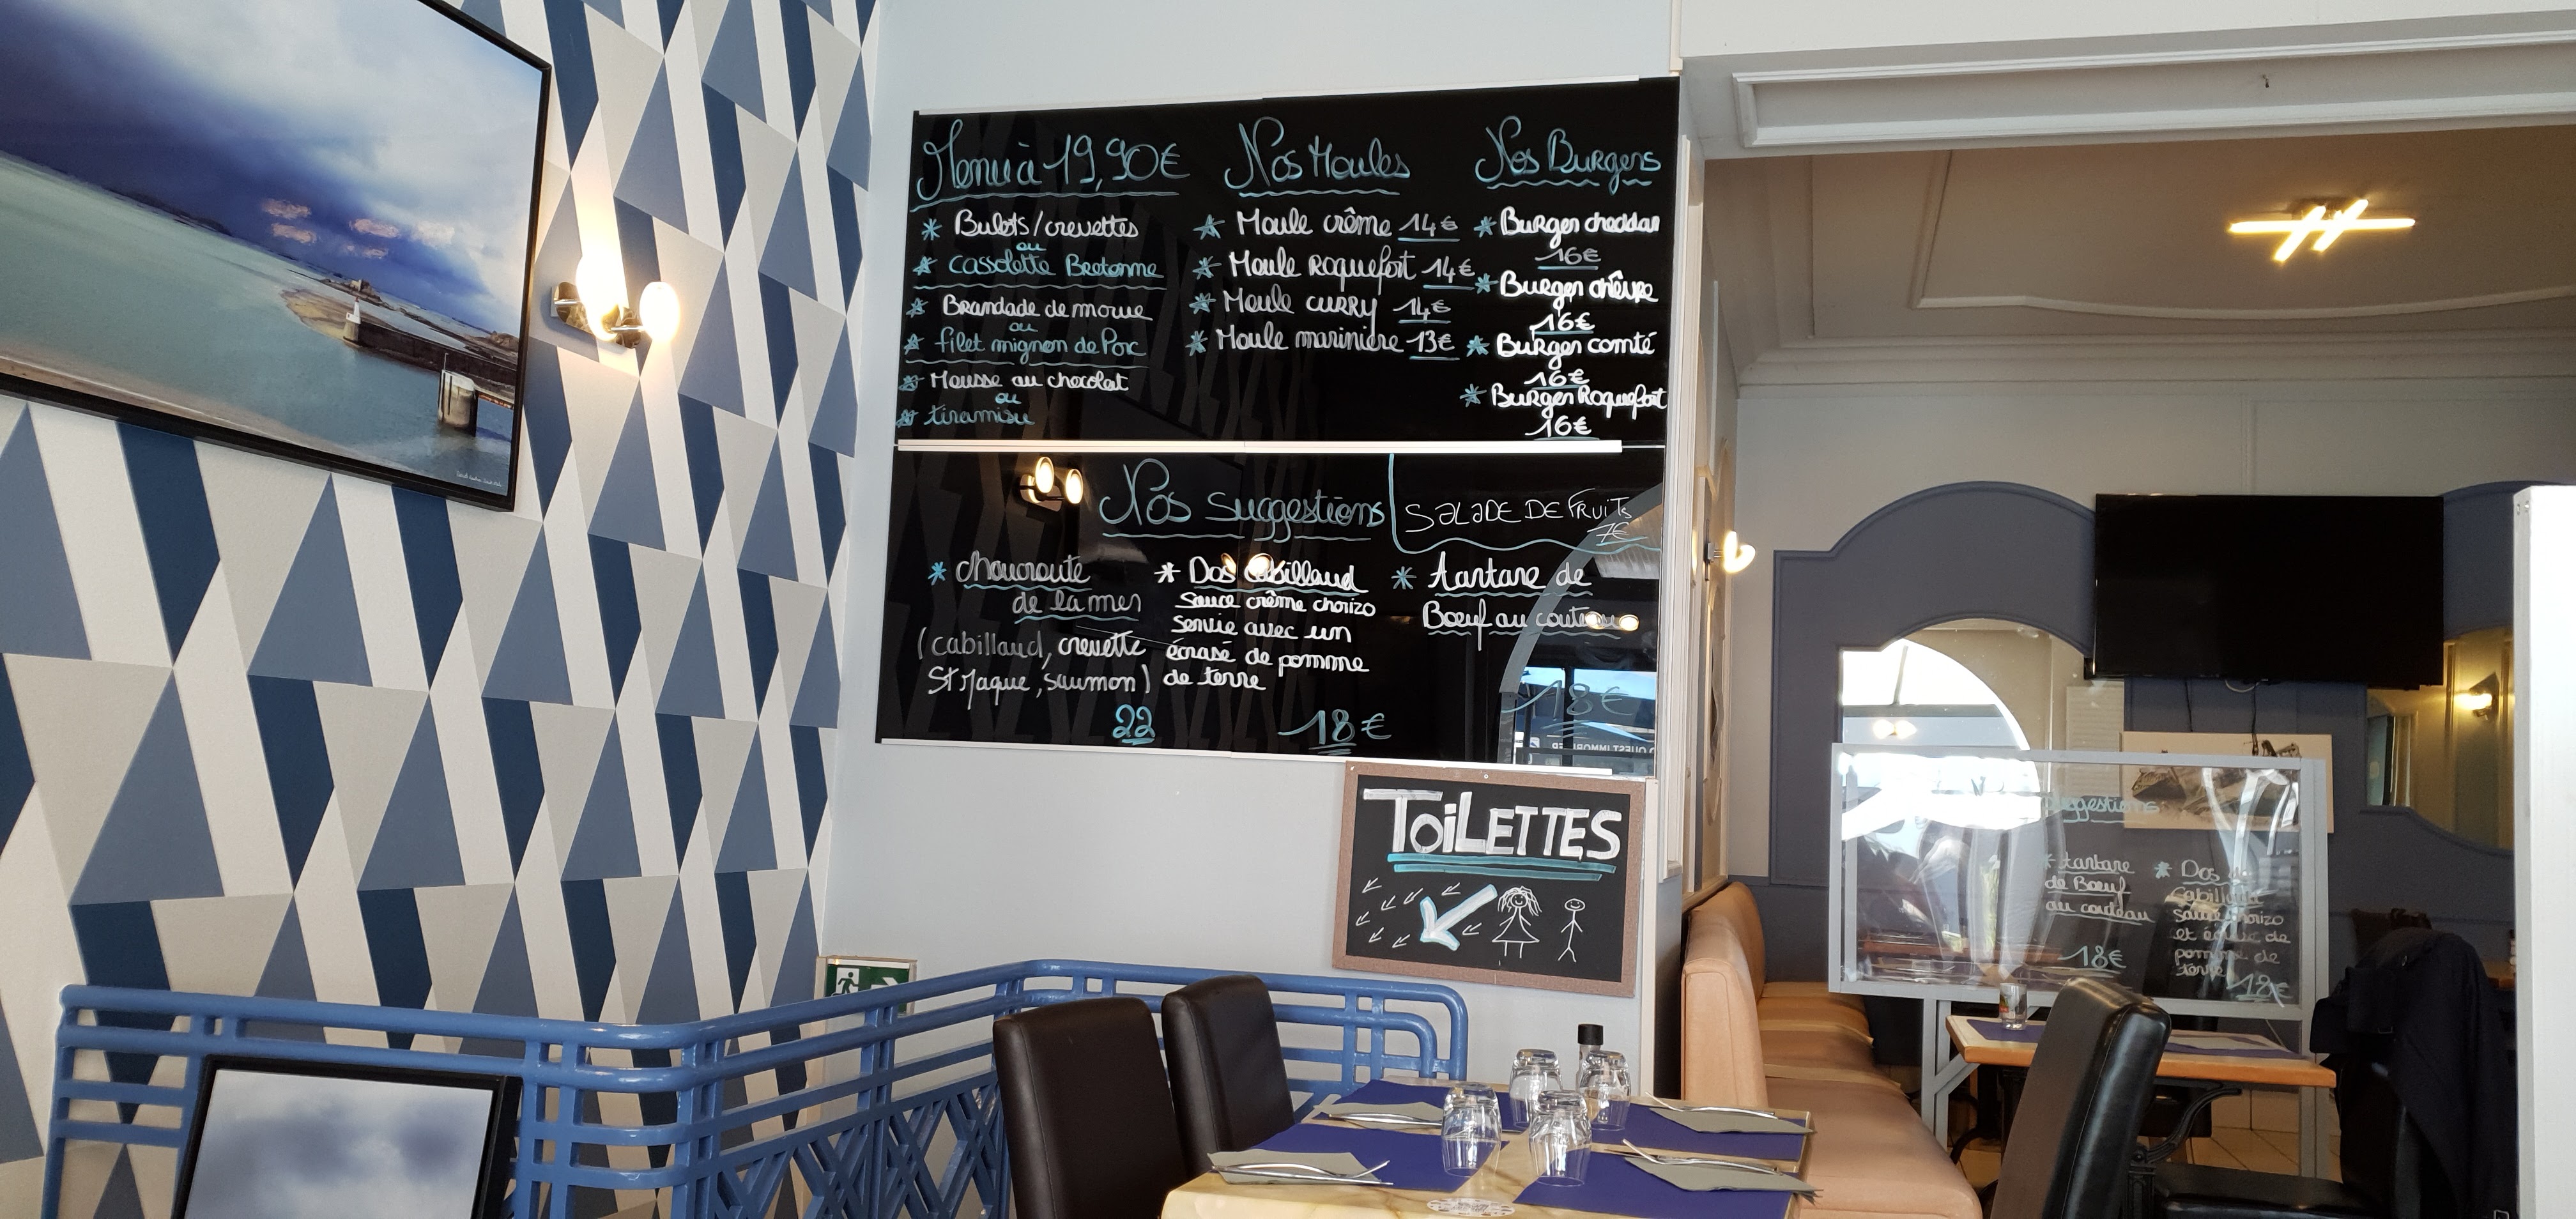 Menu à 19,90€
* Bulots/crevettes
ou
* cassolette Bretonne
* Brandade de morue
ou
* filet mignon de Porc
* Mousse au chocolat
ou
* tiramisu
Nos Moules
* Moule crème 14€
* Moule Roquefort 14€
* Moule curry 14€
* Moule marinière 13€
Nos Burgers
* Burger cheddar
16€
* Burger chèvre
16€
* Burger comté
16€
* Burger Roquefort
16€
Nos Suggestions
SALADE DE FRUITS
7€
* choucroute
de la mer
(cabillaud, crevette
St Jaque, saumon)
22
* Dos cabillaud
sauce crème chorizo
servie avec un
écrasé de pomme
de terre
18€
* tartare de
Bœuf au couteau
18€
TOILETTES
suggestions
* tartare
de Bœuf
au couteau
18€
* Dos de
cabillaud
sauce chorizo
et écrasé de
pomme de
terre 18€
OUEST IMMOBILIER